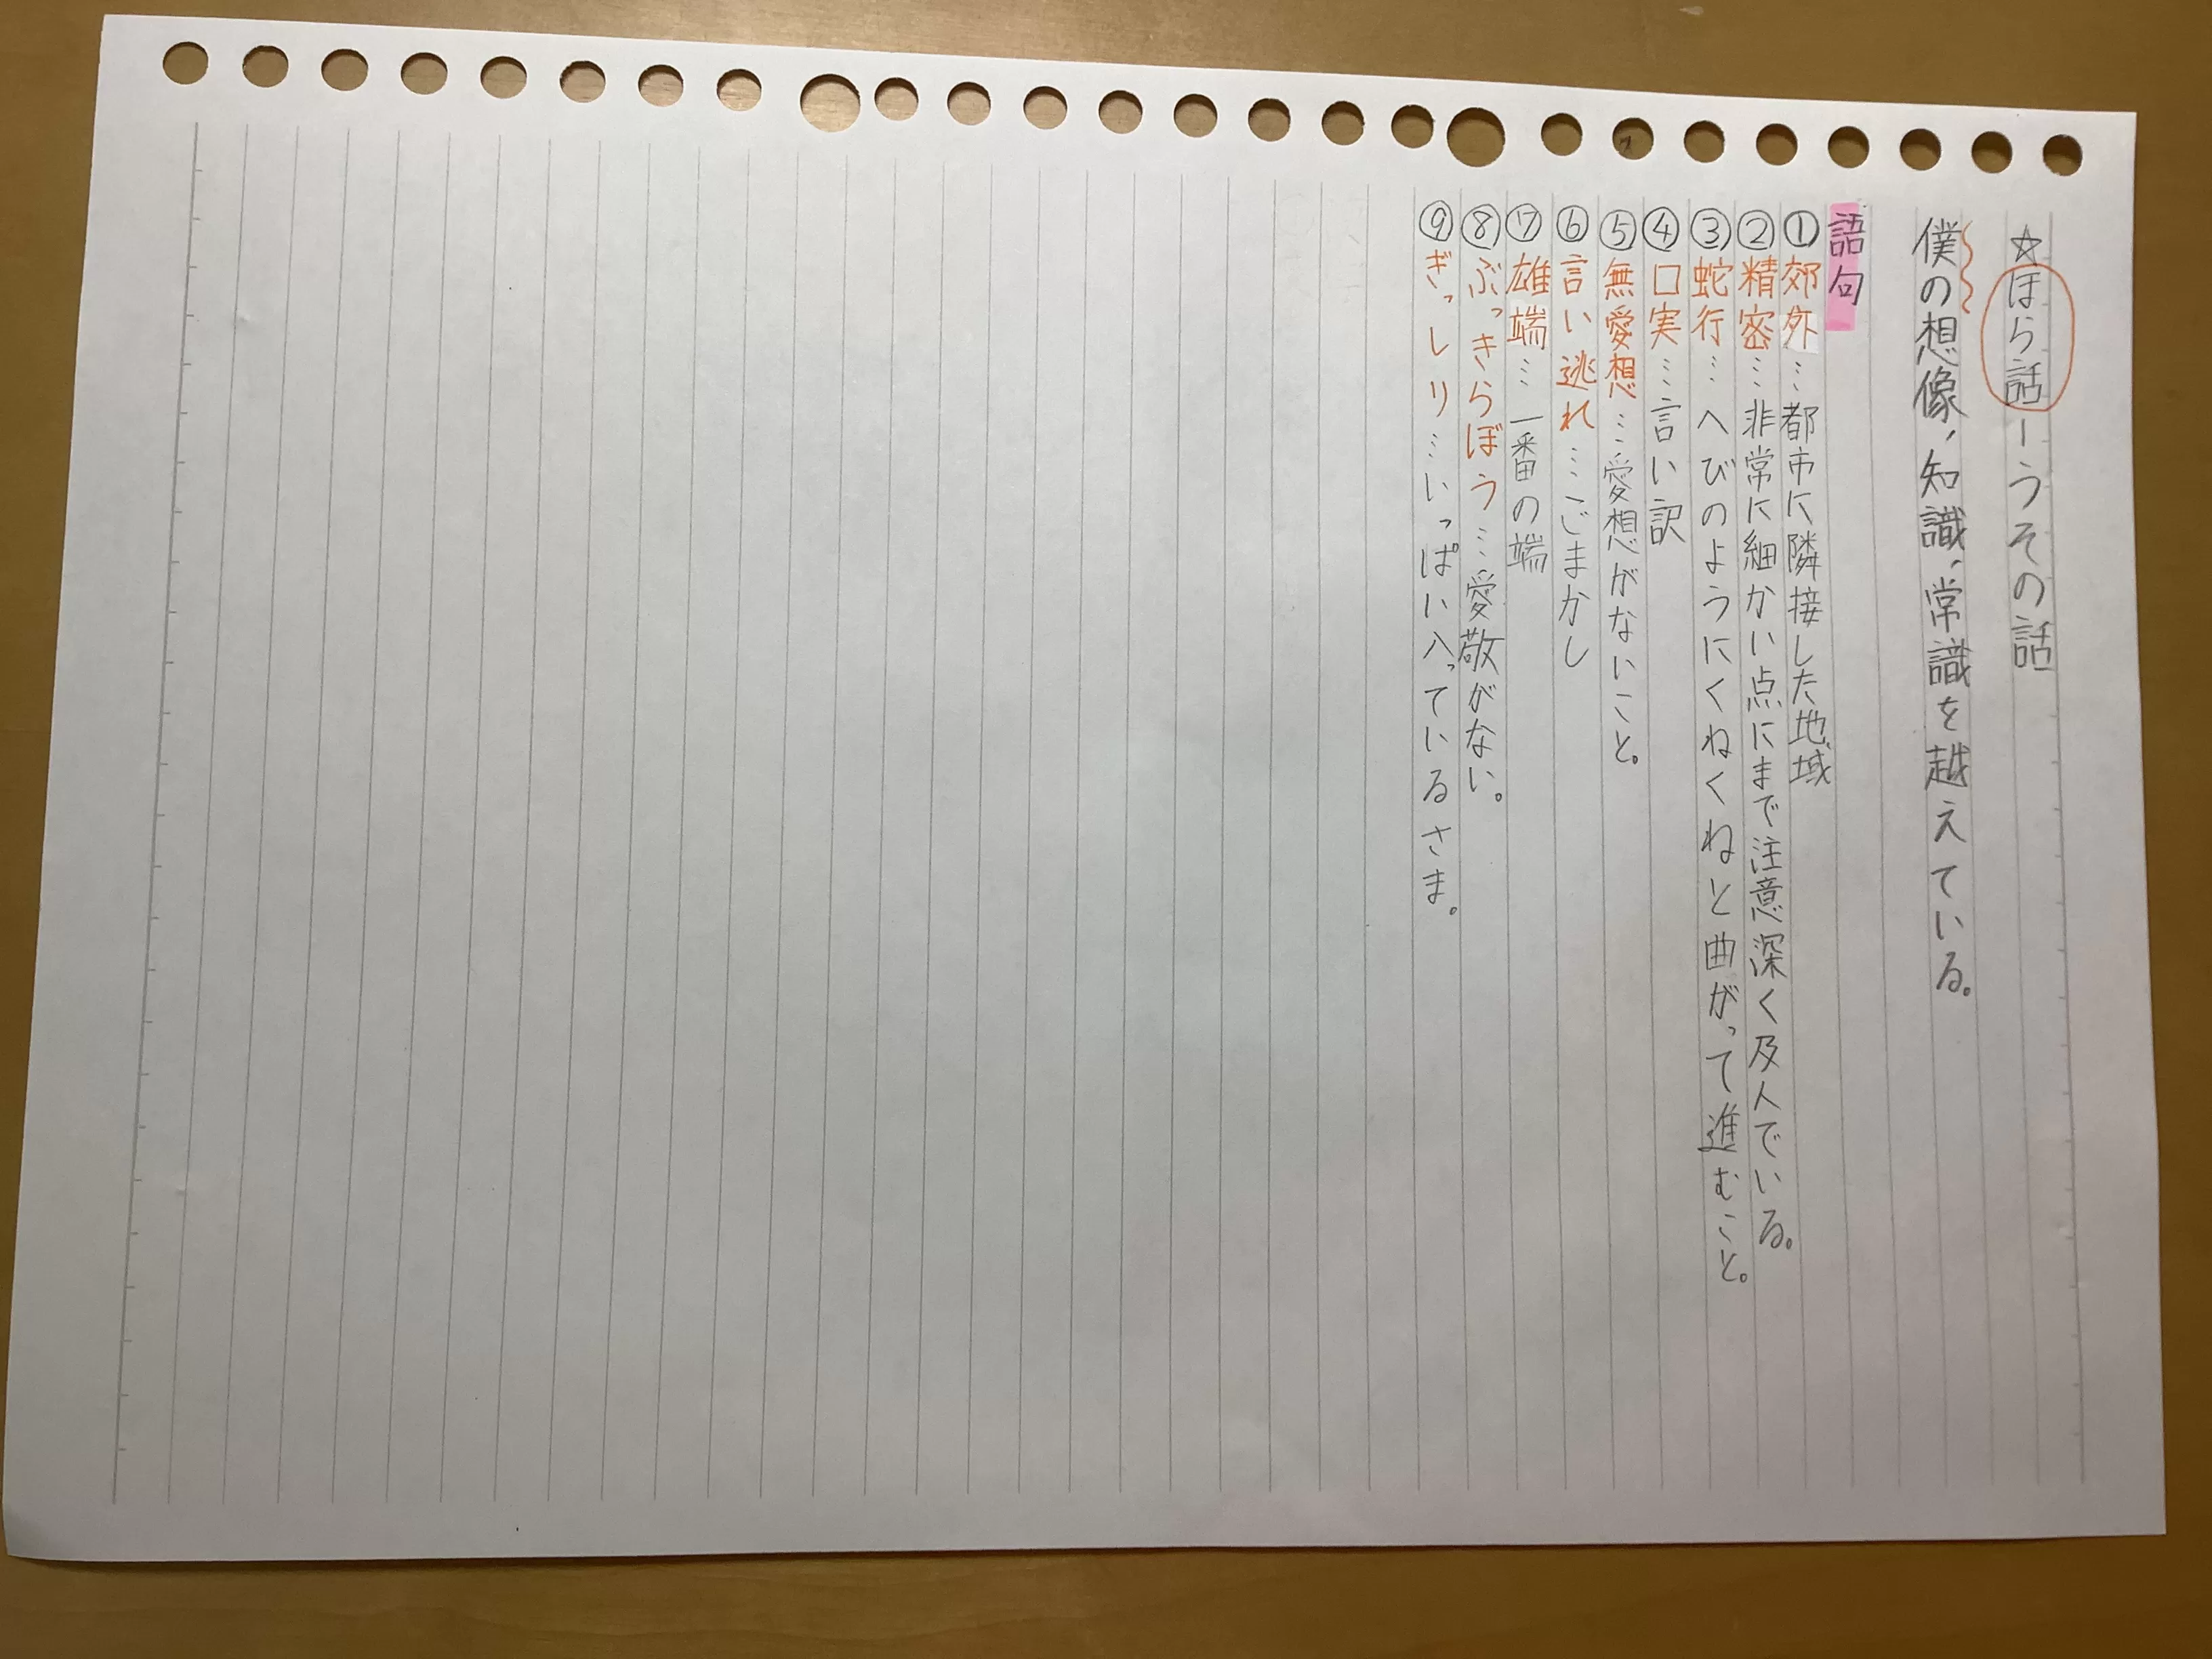 ☆ほら話ーうその話
僕の想像、知識、常識を越えている。
語句
①郊外…都市に隣接した地域
②精密…非常に細かい点にまで注意深く及人でいる。
③蛇行…へびのようにくねくねと曲がって進むこと。
④口実…言い訳
⑤無愛想…愛想がないこと。
⑥言い逃れ…ごまかし
⑦雄端…一番の端
⑧ぶっきらぼう…愛敬がない。
⑨ぎっしり…いっぱい入っているさま。